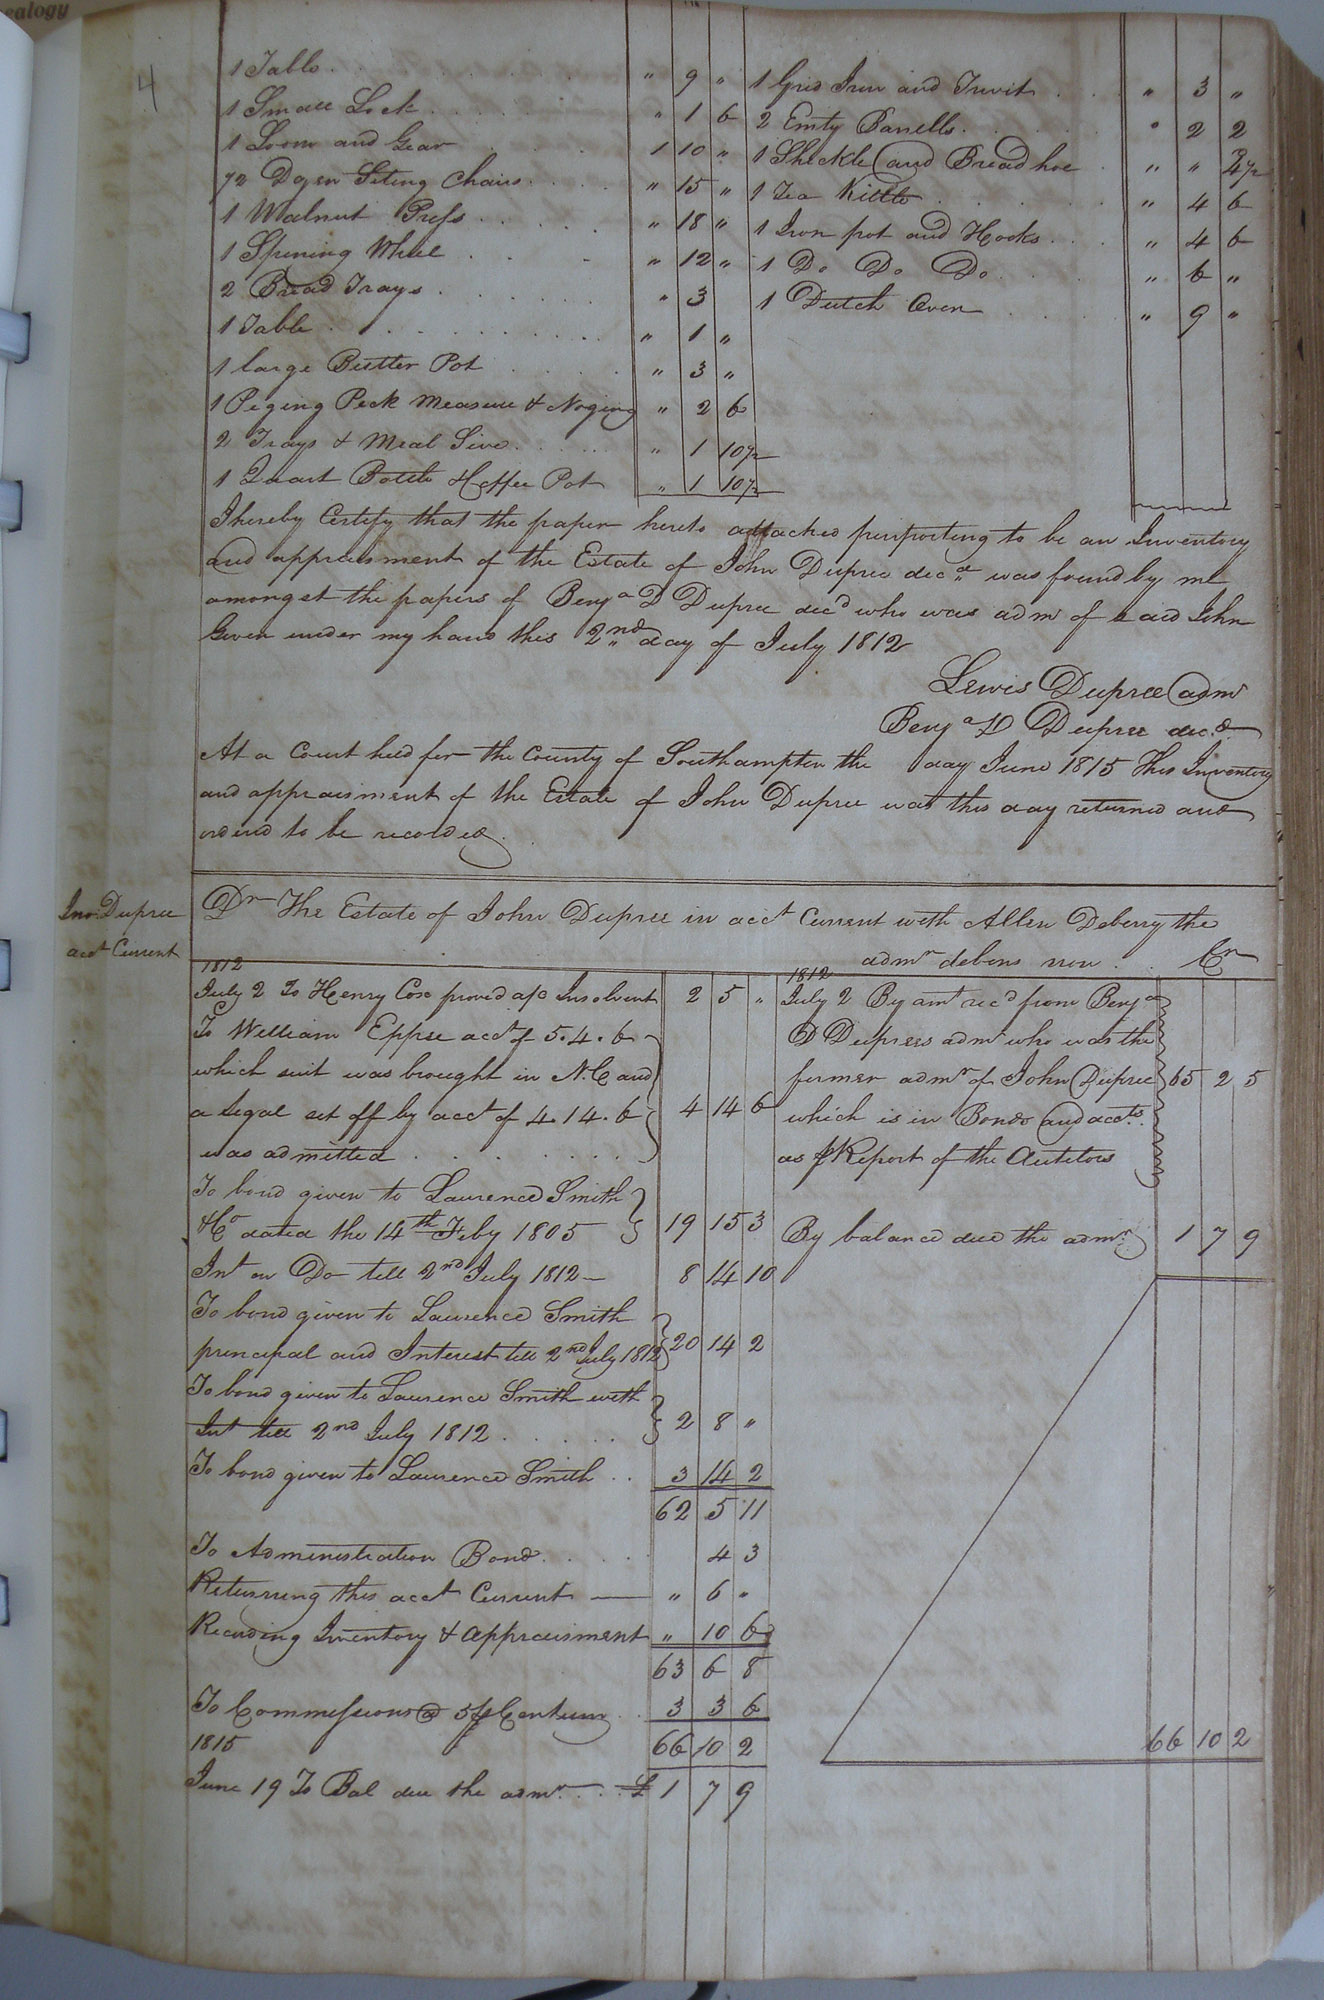 ealogy
4
1 Table . . . " 9 "
1 Small Lock . . . " 1 6
1 Loom and Gear . . . 1 10 "
1/2 Dozen Siting Chairs . . . " 15 "
1 Walnut Press . . . " 18 "
1 Spining Whee . . . " 12 "
2 Bread Trays . . . " 3
1 Table . . . " 1 "
1 large Butter Pot . . . " 3 "
1 Peging Peck measure & Noging " 2 6
2 Trays & Meal Sive . . . " 1 10 1/2
1 Quart Bottle & Coffee Pot " 1 10 1/2
1 Grid Iron and Trivit . . . " 3 "
2 Emty Barrells . . . " 2 2
1 Sheckle and Bread hoe . . . " " 4 1/2
1 Tea Kittle . . . " 4 6
1 Iron pot and Hooks . . . " 4 6
1 Do Do Do . . . " 6 "
1 Dutch Oven . . . " 9 "
I hereby Certify that the paper hereto attached purporting to be an Inventory
and appraisment of the Estate of John Dupree decd was found by me
amongst the papers of Benja D Dupree decd who was admr of said John
Given under my hand this 2nd day of July 1812
Lewis Dupree admr
Benja D Dupree decd
At a Court held for the County of Southampton the day June 1815 This Inventory
and appraisment of the Estate of John Dupree was this day returned and
orderd to be recorded
Jno. Dupree
acct Current
Dr The Estate of John Dupree in acct Current with Allen Deberry the
admr debons non . . Cr
1812
July 2 To Henry Cox proved a/c Insolvent 2 5 "
To William Eppse acct of 5.4.6
which suit was brought in N.C and
a legal set off by acct of 4.14.6 4 14 6
was admitted . . .
To bond given to Laurence Smith
& Co dated the 14th Feby 1805 19 15 3
Int on Do till 2nd July 1812 — 8 14 10
To bond given to Laurence Smith
principal and Interest till 2nd July 1812 20 14 2
To bond given to Laurence Smith with
Int till 2nd July 1812 . . . 2 8 "
To bond given to Laurence Smith . . 3 14 2
62 5 11
To Administration Bond . . . 4 3
Returning this acct Current — " 6 "
Recording Inventory & appraisment " 10 6
63 6 8
To Commissions @ 5 pr Centum . . 3 3 6
1815 66 10 2
June 19 To Bal due the admr . . . £ 1 7 9
1812
July 2 By amt recd from Benja
D Duprees admr who was the
former admr of John Dupree 65 2 5
which is in Bonds and accts.
as pr Report of the Autitors
By balance due the admr 1 7 9
66 10 2